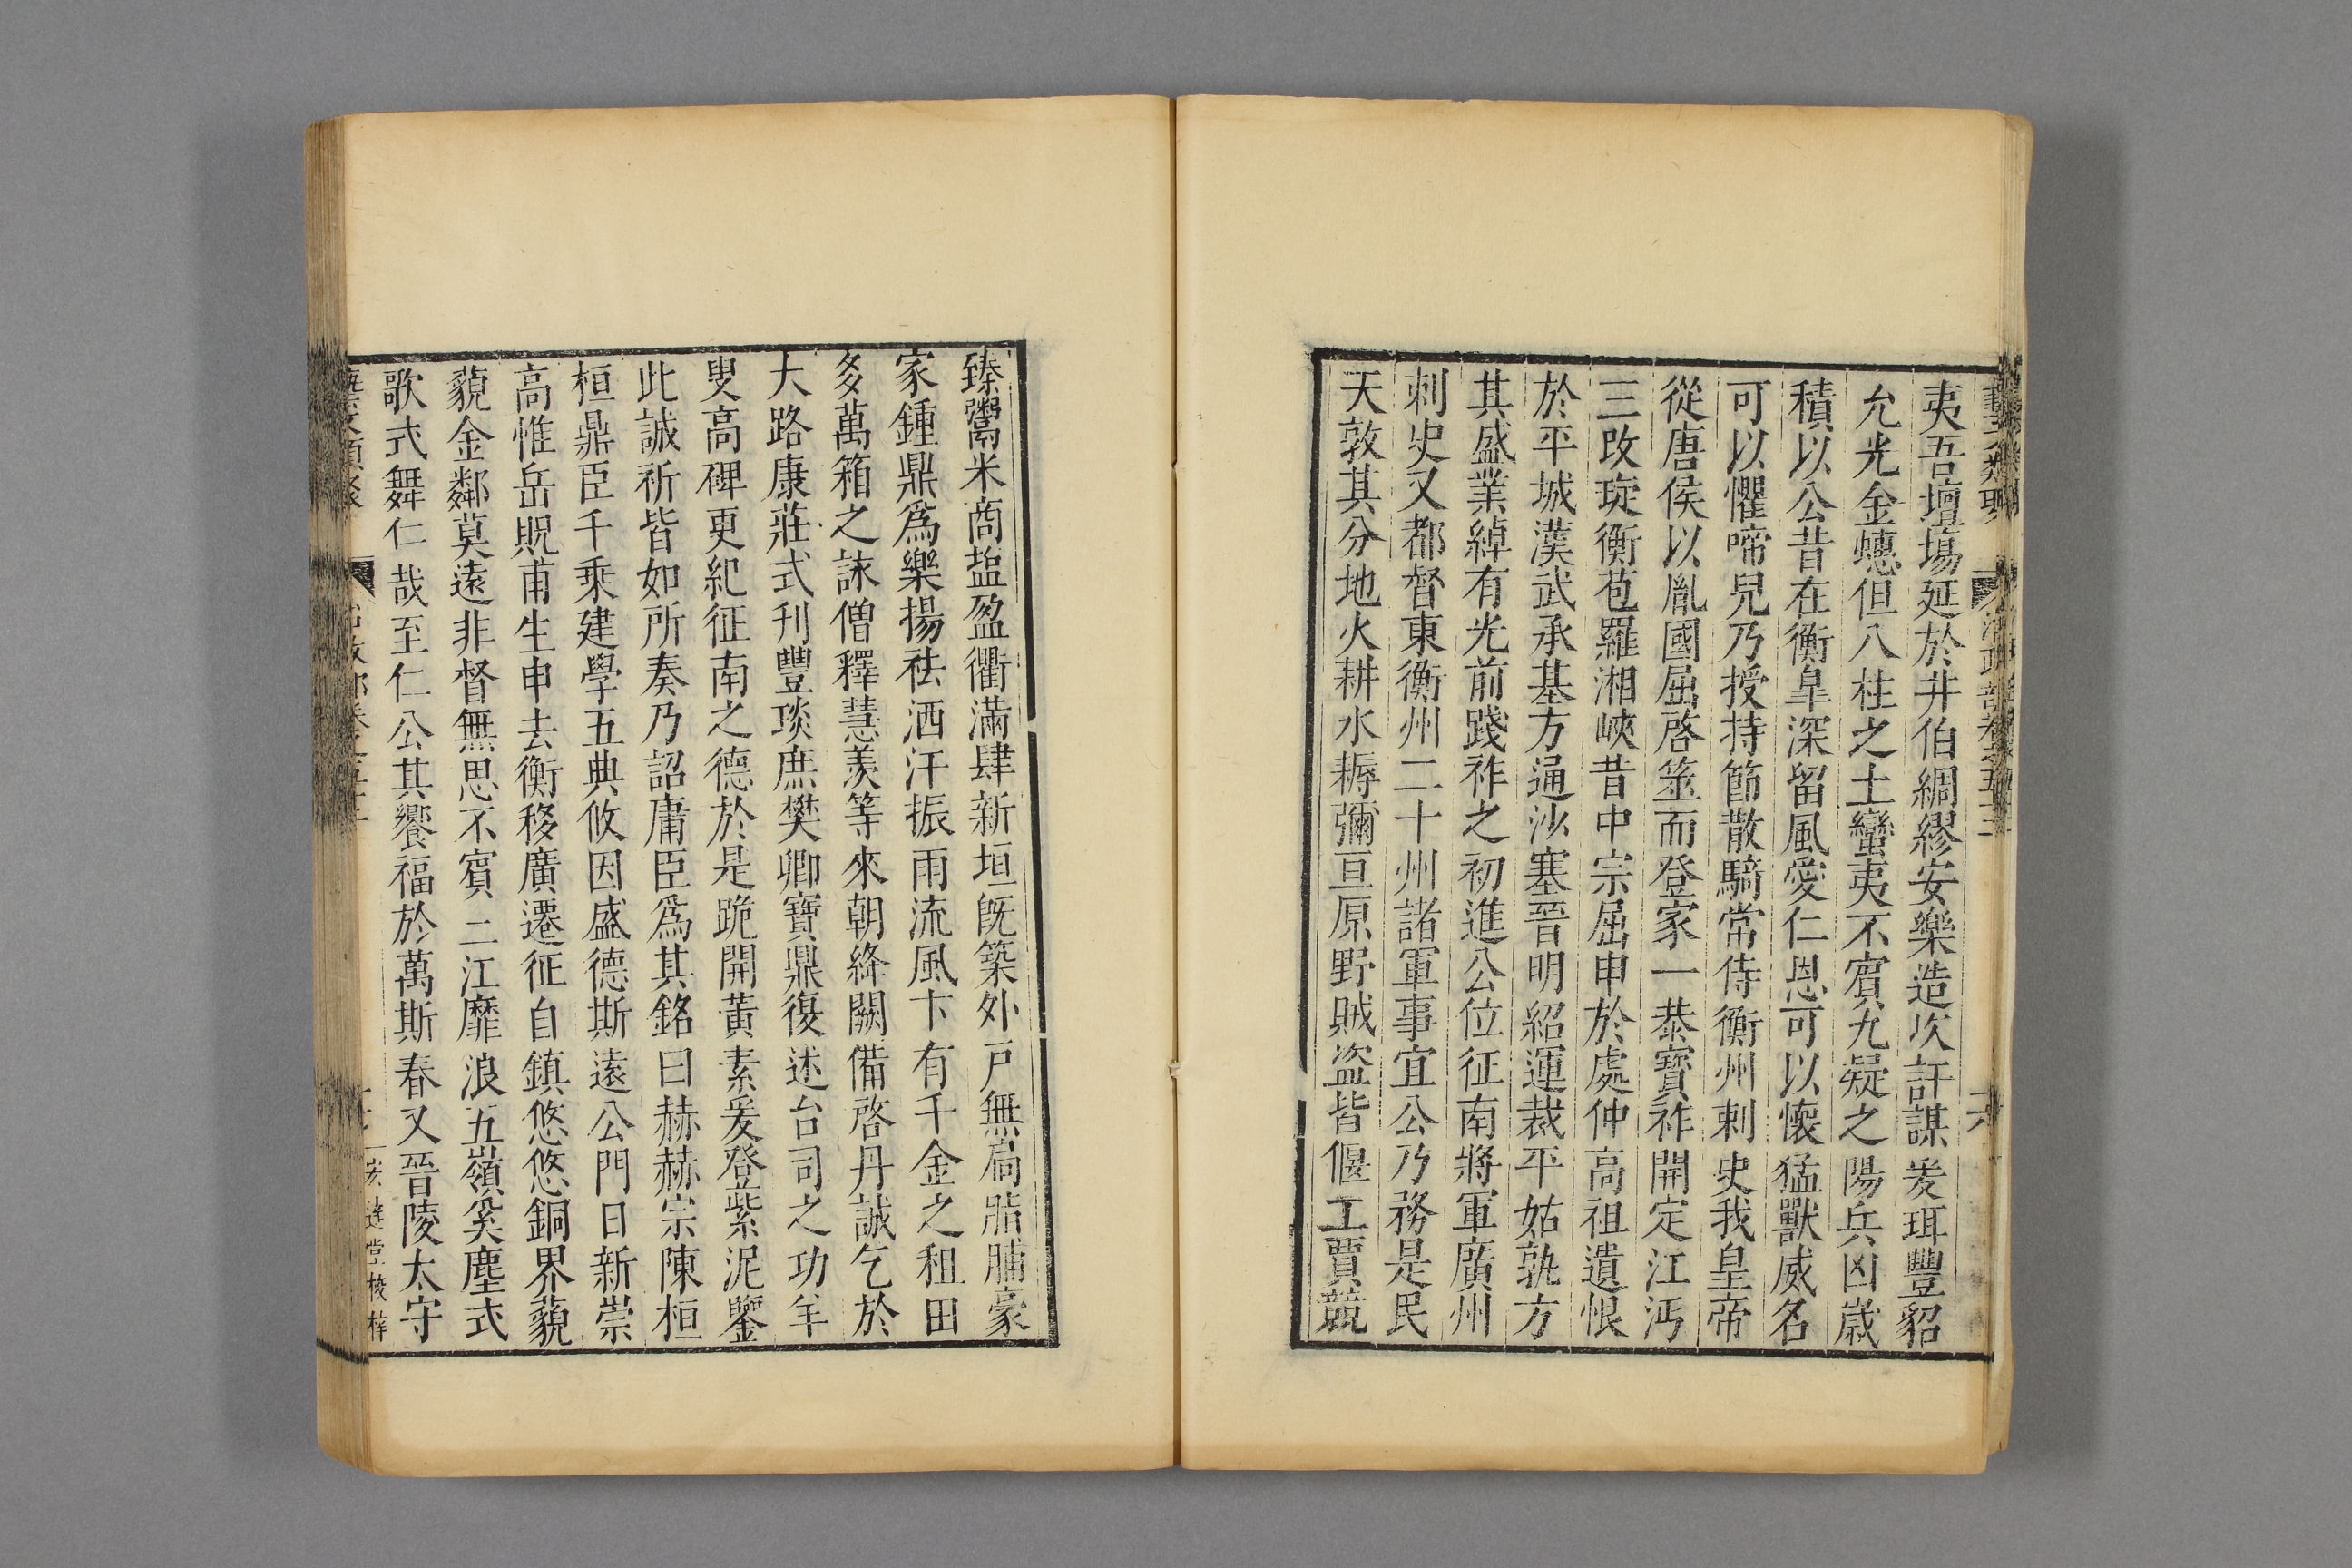 夷吾壇塲延於井伯綢繆安樂造次訏謀爰珥豐貂
允光金蟪但八柱之土蠻夷不賓九疑之陽兵凶歳
積以公昔在衡皐深留風愛仁恩可以懷猛獸威名
可以懼啼兒乃授持節散騎常侍衡州刺史我皇帝
從唐侯以胤國屈啓筮而登家一恭寶祚開定江沔
三改琁衡苞羅湘峽昔中宗屈申於處仲高祖遺恨
於平城漢武承基方通沙塞晉明紹運裁平姑孰方
其盛業綽有光前踐祚之初進公位征南將軍廣州
刺史又都督東衡州二十州諸軍事宜公乃務是民
天敦其分地火耕水耨彌亘原野賊盗皆偃工賈競
臻鬻米商塩盈衢滿肆新垣旣築外戸無扃脂脯豪
家鍾鼎爲樂揚袪洒汗振雨流風卞有千金之租田
多萬箱之詠僧釋慧羨等來朝絳闕備啓丹誠乞於
大路康莊式刊豐琰庶樊卿寶鼎復述台司之功羊
叟高碑更紀征南之德於是跪開黃素爰登紫泥鑒
此誠祈皆如所奏乃詔庸臣爲其銘曰赫赫宗陳桓
桓鼎臣千乘建學五典攸因盛德斯遠公門日新崇
高惟岳貺甫生申去衡移廣遷征自鎮悠悠銅界藐
藐金鄰莫遠非督無思不賓二江靡浪五嶺奚塵式
歌式舞仁哉至仁公其饗福於萬斯春又晉陵太守